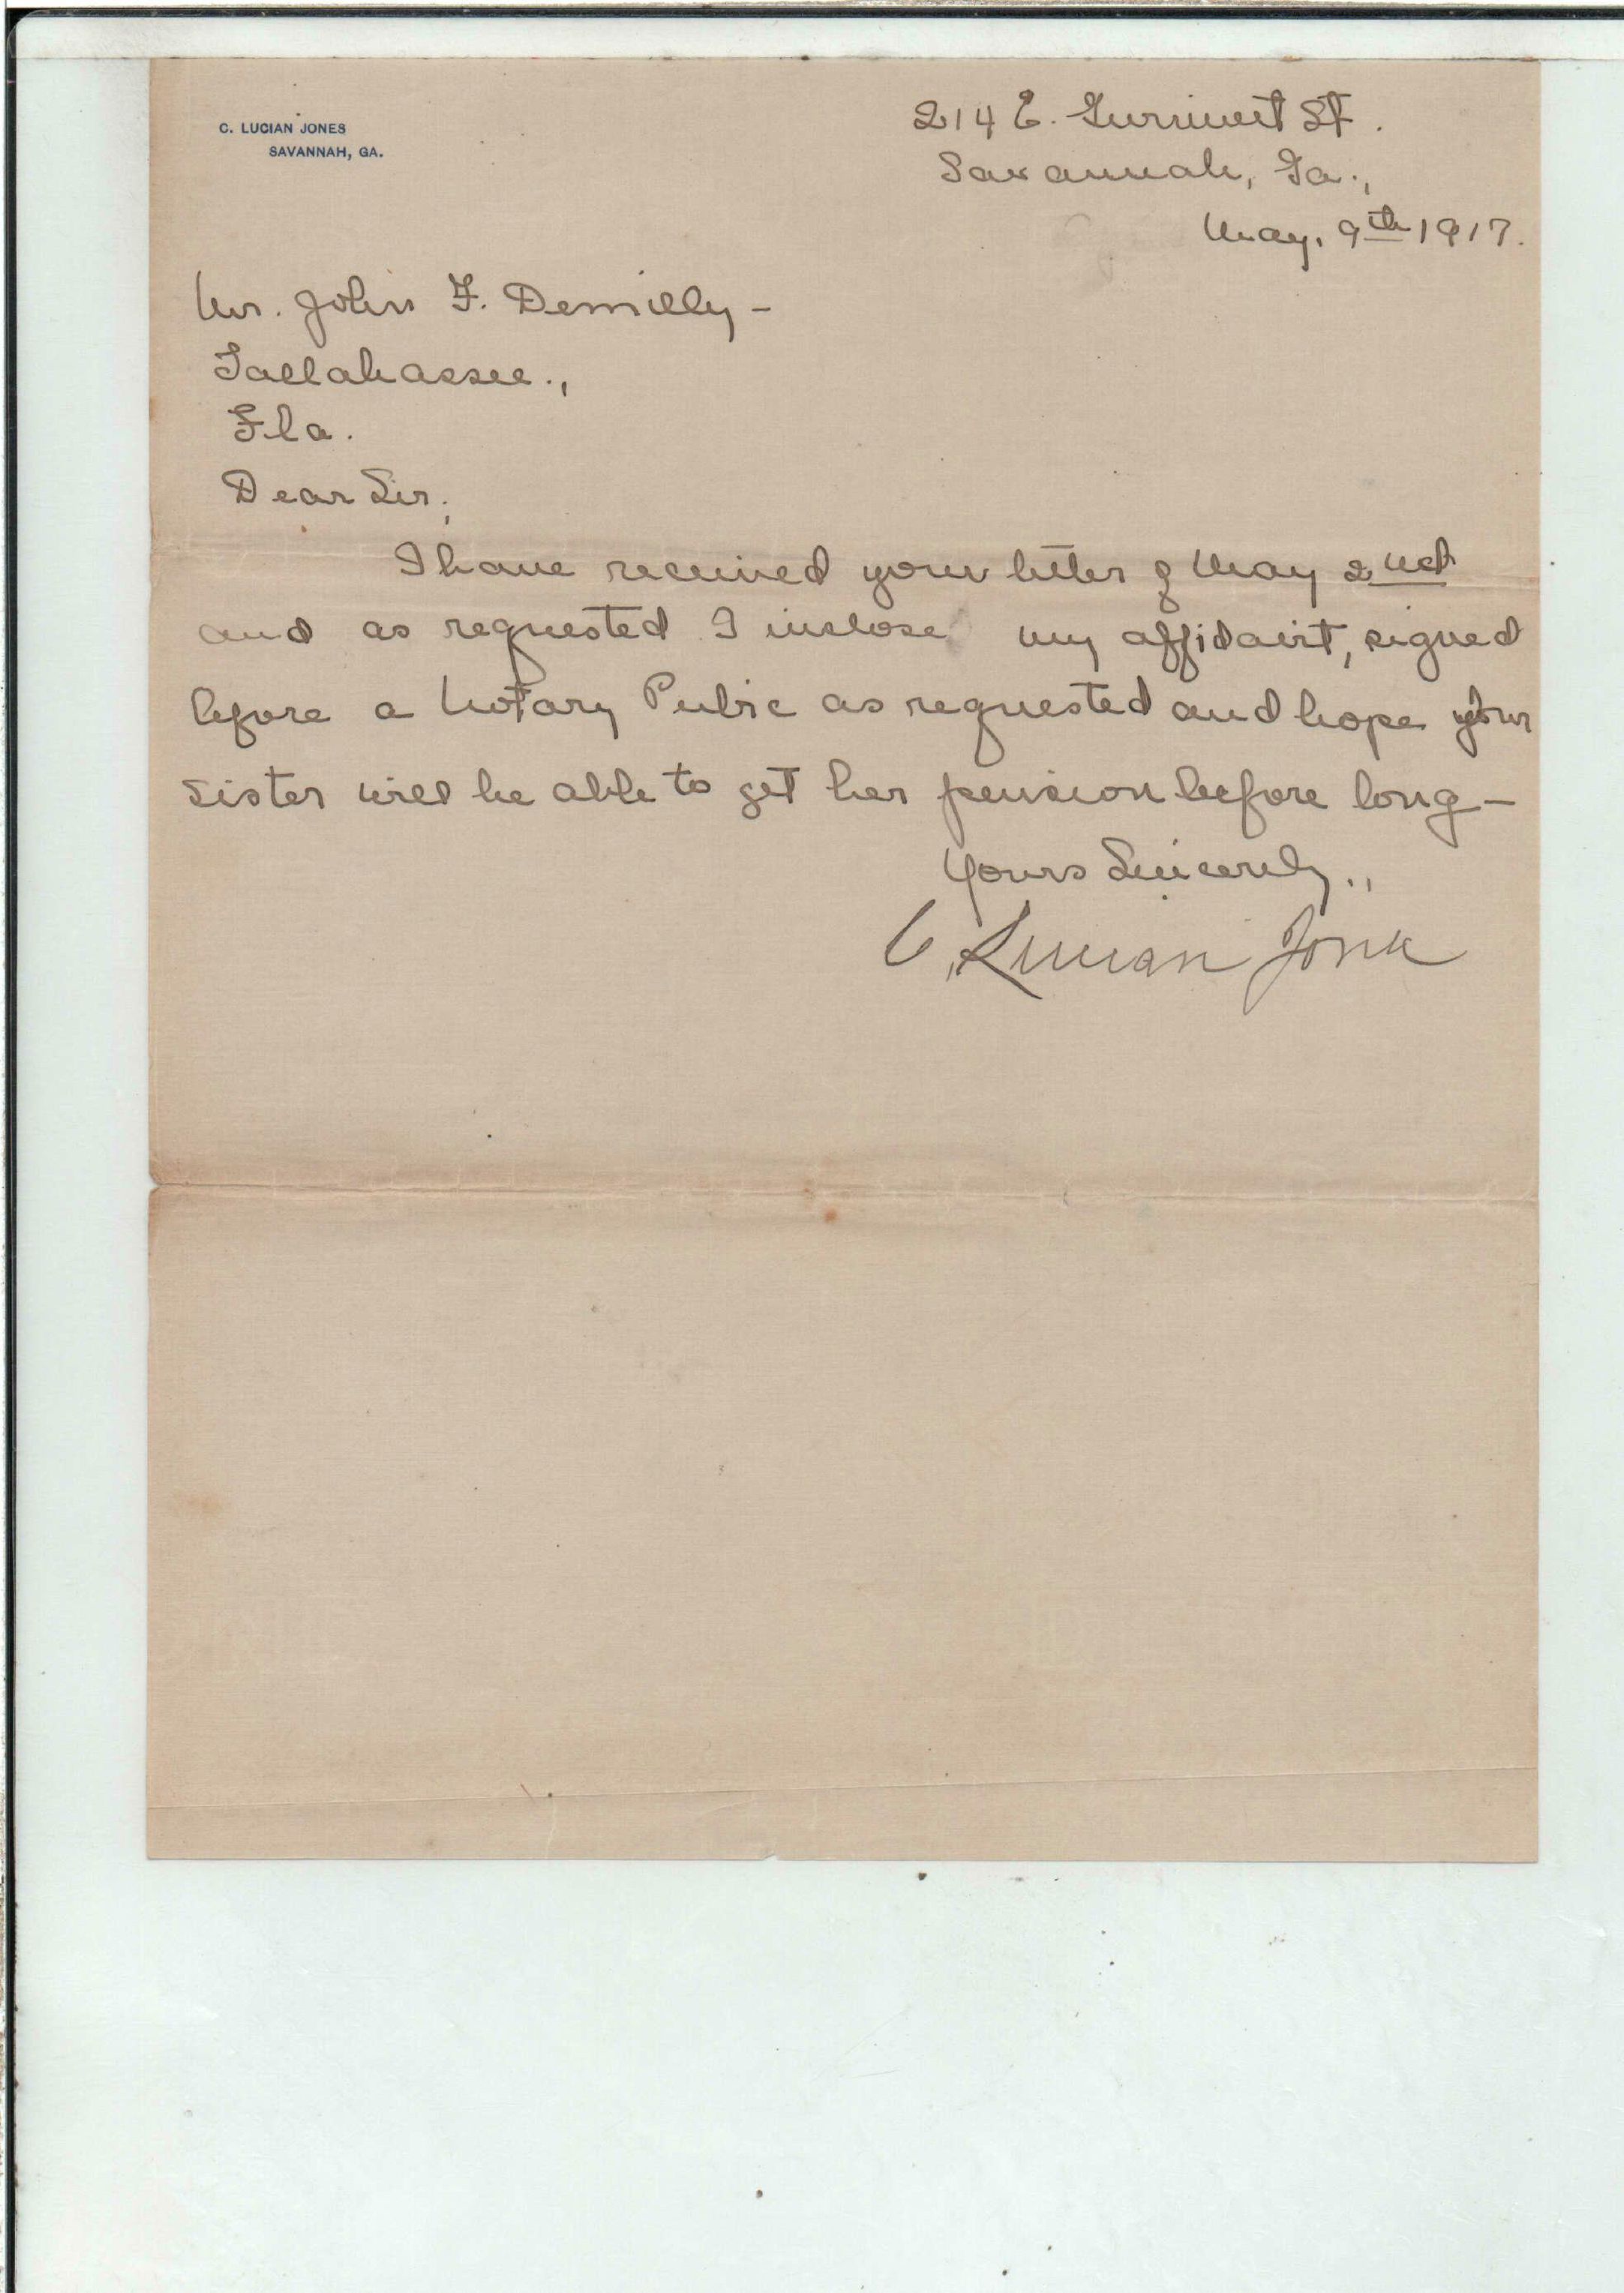 C. LUCIAN JONES
SAVANNAH, GA.
214 E. Gwinnett St.
Savannah, Ga.,
May, 9th 1917.
Mr. John F. Demilly -
Tallahassee.,
Fla.
Dear Sir;
I have received your letter of May 2nd
and as requested I inclose my affidavit, signed
before a Notary Public as requested and hope your
sister will be able to get her pension before long -
Yours Sincerely.,
C. Lucian Jones